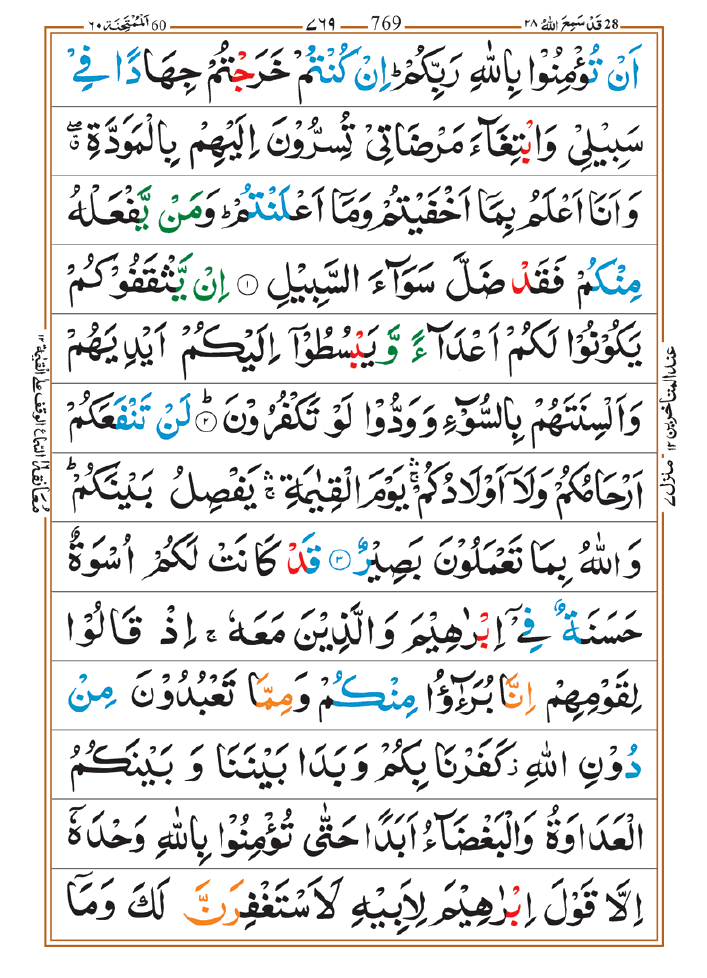 28 قَدْ سَمِعَ اللهُ ٢٨
769 ٧٦٩
60 اَلْمُمْتَحِنَة ٦٠
اَنْ تُؤْمِنُوْا بِاللّٰهِ رَبِّكُمْ ؕ اِنْ كُنْتُمْ خَرَجْتُمْ جِهَادًا فِيْ
سَبِيْلِيْ وَابْتِغَآءَ مَرْضَاتِيْ تُسِرُّوْنَ اِلَيْهِمْ بِالْمَوَدَّةِ ۖۗ
وَاَنَا اَعْلَمُ بِمَاۤ اَخْفَيْتُمْ وَمَاۤ اَعْلَنْتُمْ ؕ وَمَنْ يَّفْعَلْهُ
مِنْكُمْ فَقَدْ ضَلَّ سَوَآءَ السَّبِيْلِ ۝۱ اِنْ يَّثْقَفُوْكُمْ
يَكُوْنُوْا لَكُمْ اَعْدَآءً وَّيَبْسُطُوْۤا اِلَيْكُمْ اَيْدِيَهُمْ
وَاَلْسِنَتَهُمْ بِالسُّوْٓءِ وَوَدُّوْا لَوْ تَكْفُرُوْنَ ؕ۝۲ لَنْ تَنْفَعَكُمْ
اَرْحَامُكُمْ وَلَاۤ اَوْلَادُكُمْ ۛۚ يَوْمَ الْقِيٰمَةِ ۛۚ يَفْصِلُ بَيْنَكُمْ ؕ
وَاللّٰهُ بِمَا تَعْمَلُوْنَ بَصِيْرٌ ۝۳ قَدْ كَانَتْ لَكُمْ اُسْوَةٌ
حَسَنَةٌ فِيْۤ اِبْرٰهِيْمَ وَالَّذِيْنَ مَعَهٗ ۚ اِذْ قَالُوْا
لِقَوْمِهِمْ اِنَّا بُرَءٰٓؤُا مِنْكُمْ وَمِمَّا تَعْبُدُوْنَ مِنْ
دُوْنِ اللّٰهِ ز كَفَرْنَا بِكُمْ وَبَدَا بَيْنَنَا وَبَيْنَكُمُ
الْعَدَاوَةُ وَالْبَغْضَآءُ اَبَدًا حَتّٰى تُؤْمِنُوْا بِاللّٰهِ وَحْدَهٗۤ
اِلَّا قَوْلَ اِبْرٰهِيْمَ لِاَبِيْهِ لَاَسْتَغْفِرَنَّ لَكَ وَمَاۤ
عند المتاخرين ١٢ منزل ٧
معانقة ١٦ الثلثة الوقف على القيمة ١٢